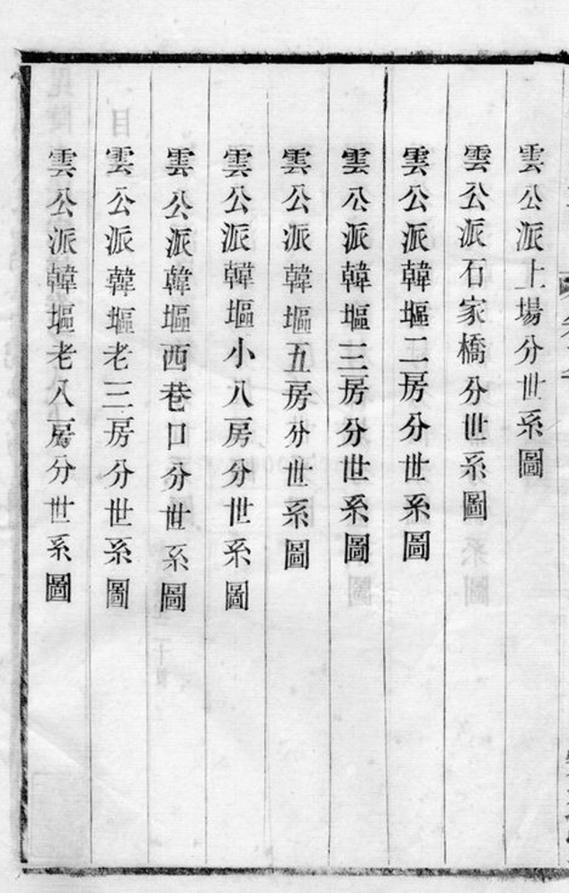 雲公派上場分世系圖
雲公派石家橋分世系圖
雲公派韓塸二房分世系圖
雲公派韓塸三房分世系圖
雲公派韓塸五房分世系圖
雲公派韓塸小八房分世系圖
雲公派韓塸西巷口分世系圖
雲公派韓塸老三房分世系圖
雲公派韓塸老八房分世系圖